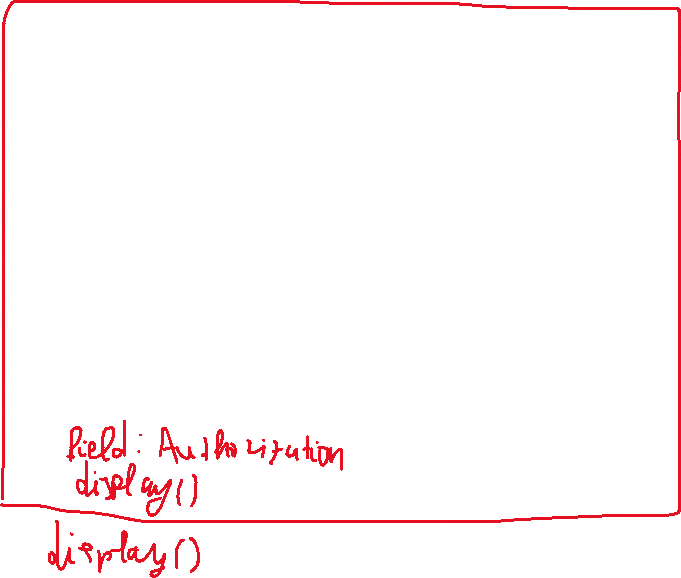 field: Authorization
display()
display()